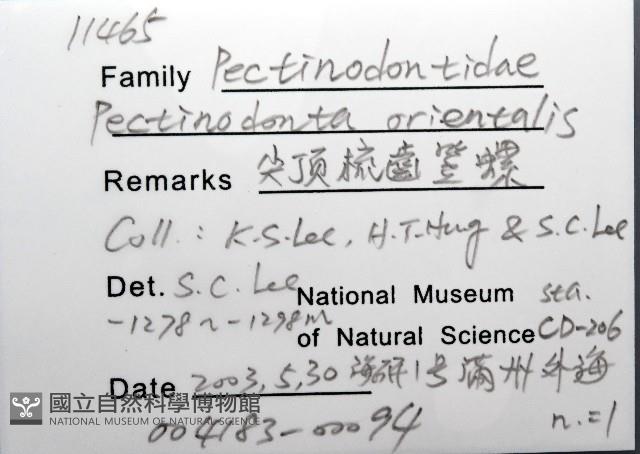 11465
Family Pectinodontidae
Pectinodonta orientalis
Remarks 尖頂梳齒笠螺
Coll. : K.S.Lee, H.T.Hung & S.C.Lee
Det. S.C.Lee National Museum sta.
-1278~-1298m of Natural Science CD-206
Date 2003,5,30 海研1号 滿州外海
國立自然科學博物館
NATIONAL MUSEUM OF NATURAL SCIENCE
004183-00094 n.=1